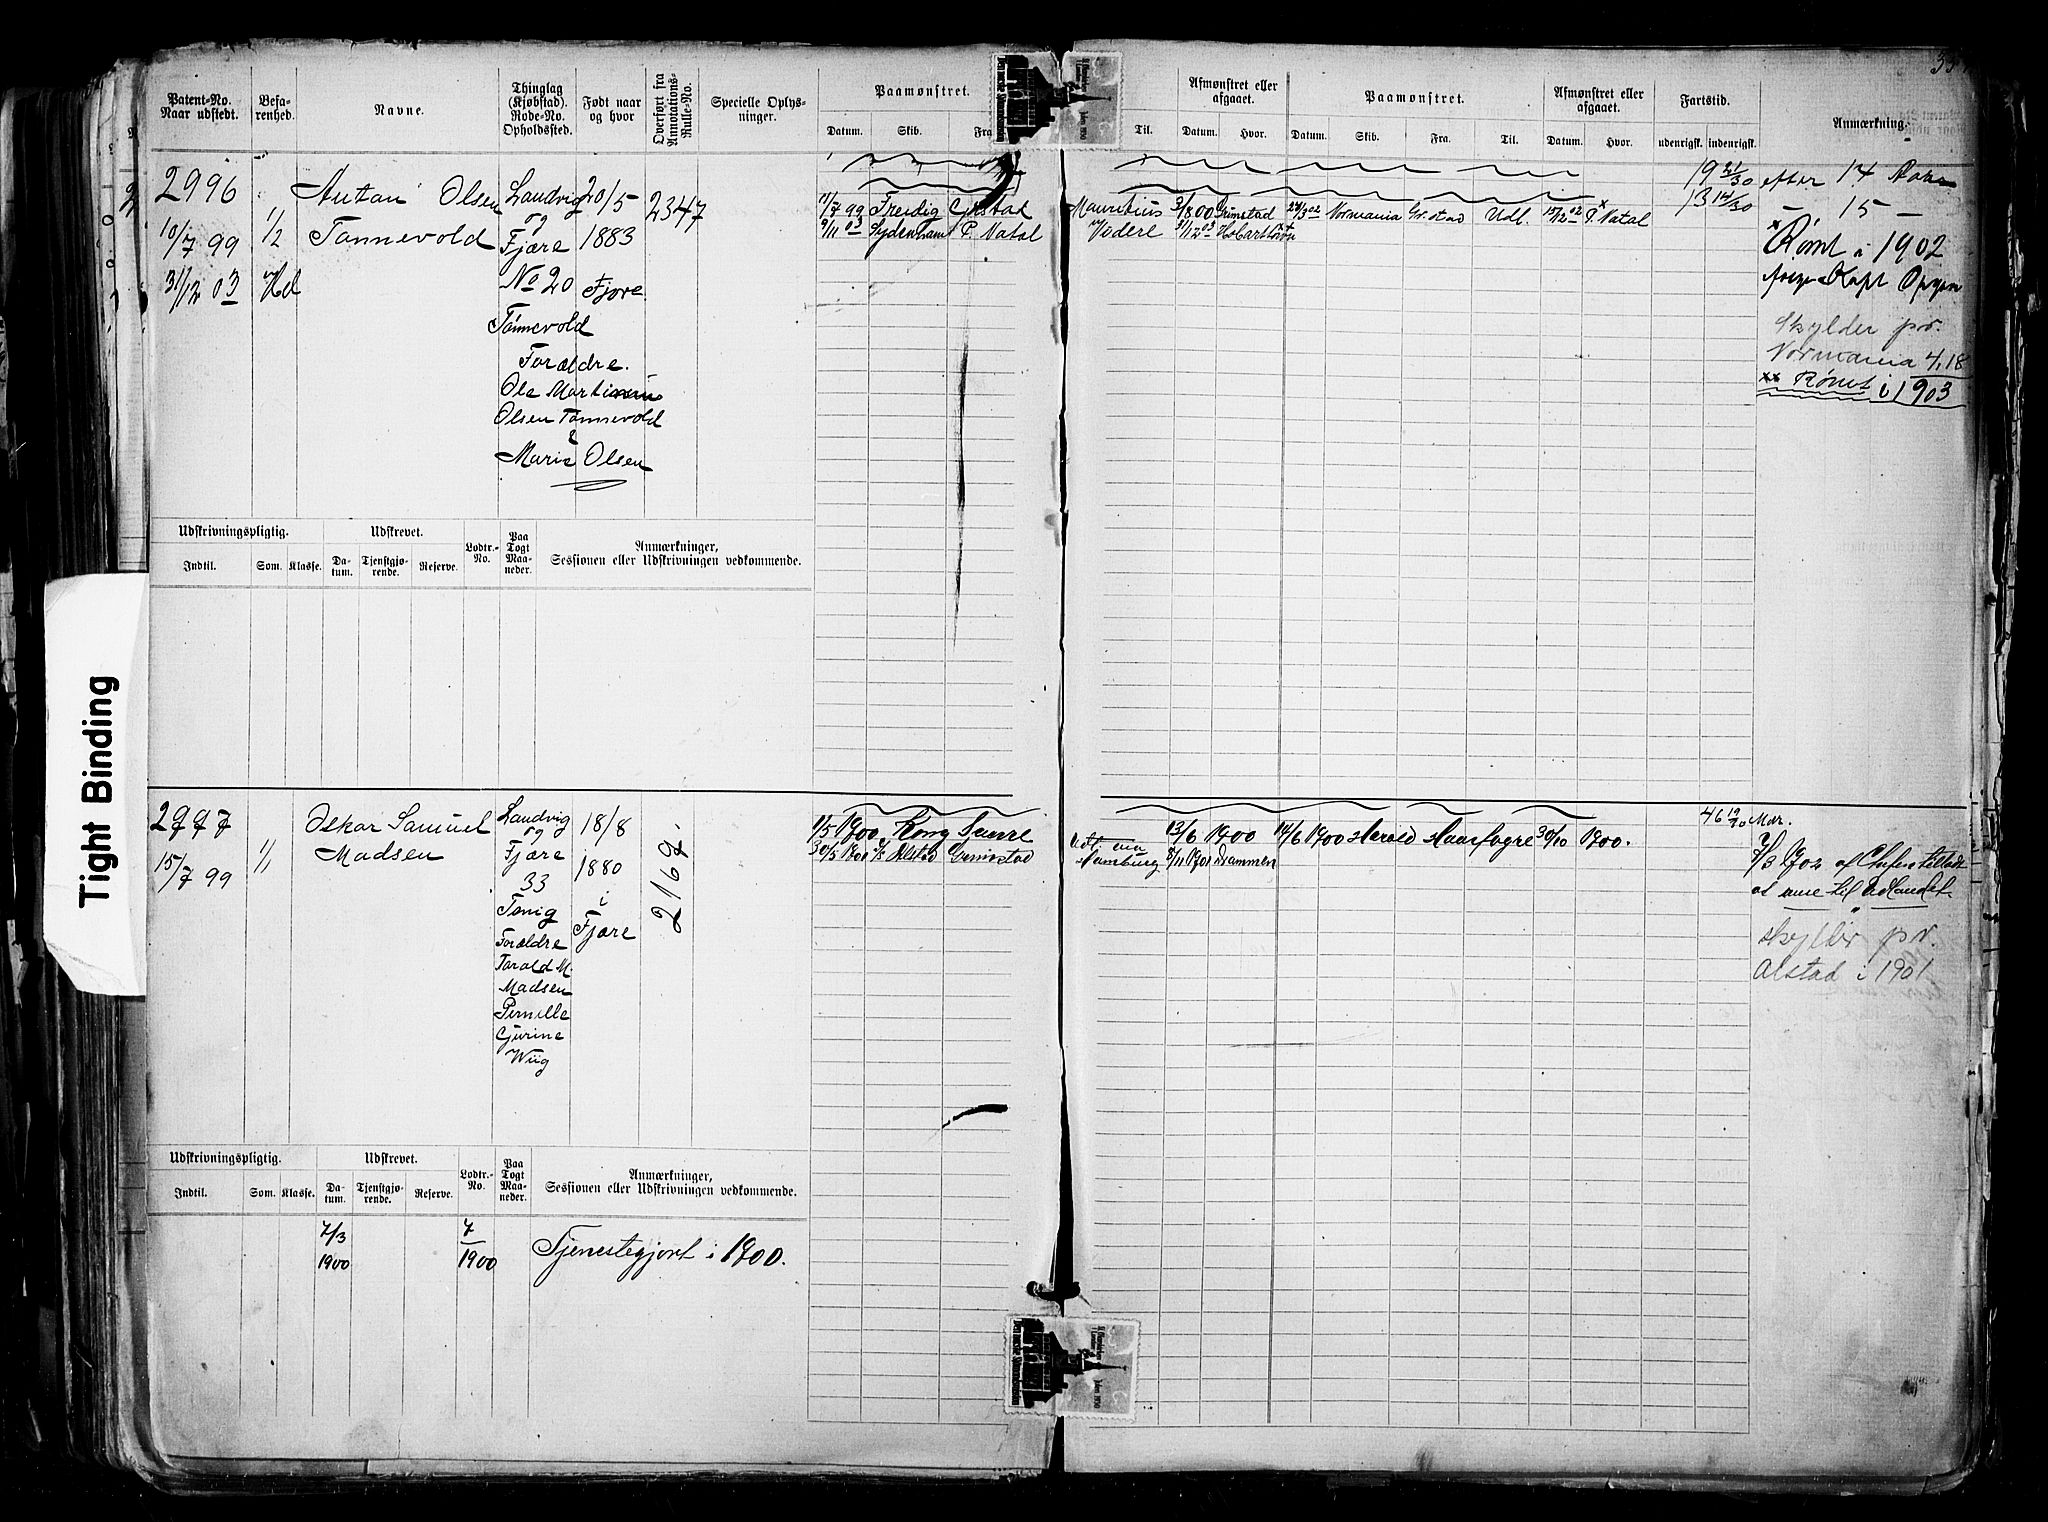 Patent-No. Naar udstedt.
Befarenhed.
Navne.
Thinglag (Kjøbstad). Rode-No. Opholdssted.
Født naar og hvor
Overført fra Annotations-Rulle-No.
Specielle Oplysninger.
Paamønstret.
Datum. Skib. Fra
Til.
Afmønstret eller afgaaet.
Datum. Hvor.
Paamønstret.
Datum. Skib. Fra. Til.
Afmønstret eller afgaaet.
Datum. Hvor.
Fartstid.
udenrigsk. indenrigsk.
Anmærkning.
2996
10/7 99
31/12 03
1/2
Anton Olsen
Tønnevold
Landvig
og
Fjære
No 20
Tønnevold
Forældre.
Ole Martinius
Olsen Tønnevold
&
Marie Olsen
20/5
1883
Fjære
2347
11/7 99 Freidig Grstad Mauritius 3/8 00 Grimstad 24/3 02 Normania Gr.stad Udl. 15/12 02 P. Natal
9/11 03 Sydenham P. Natal
19 21/30 efter 14 Aar
13 14/30 - 15 -
x Rømt i 1902
Skylder pr.
Normania 4,18
xx Rømt i 1903
Udskrivningspligtig.
Udskrevet.
Lodtr.-No.
Paa Togt Maaneder.
Anmærkninger,
Sessionen eller Udskrivningen vedkommende.
Indtil. Som. Klasse. Datum. Tjenstgjørende. Reserve.
2997
15/7 99
1/1
Oskar Samuel
Madsen
Landvig
og
Fjære
33
Tønig
Forældre
Tarald M.
Madsen
Pernille
Gurine
Wiig
18/8
1880
i
Fjære
2169.
1/5 1900 Kong Sverre 13/6 1900 14/6 1900 Harald Haarfagre 30/10 1900.
30/5 1901 S/S Alstad Grimstad Hamburg 8/11 1901 Drammen
46 19/30 Mdr.
7/3 1902 af Chefen tilladt
at reise til Udlandet.
skylder pr.
Alstad i 1901
Udskrivningspligtig.
Udskrevet.
Lodtr.-No.
Paa Togt Maaneder.
Anmærkninger,
Sessionen eller Udskrivningen vedkommende.
Indtil. Som. Klasse. Datum. Tjenstgjørende. Reserve.
7/3
1900
7
1900
Tjenestegjort i 1900.
Tight Binding